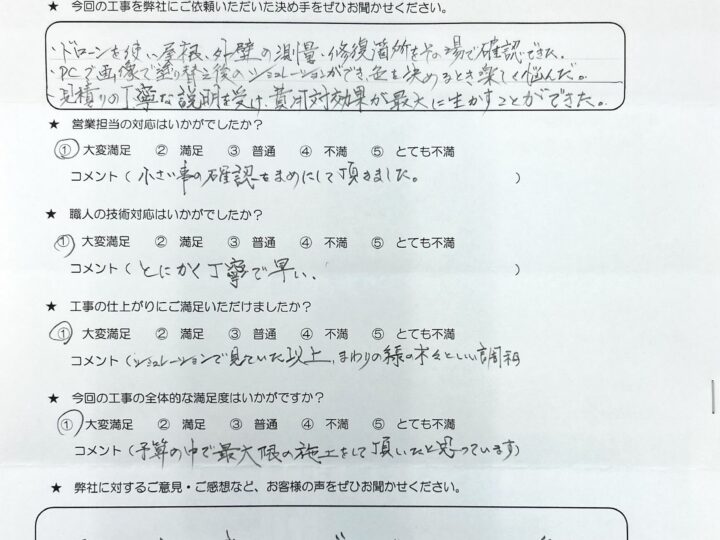 ★ 今回の工事を弊社にご依頼いただいた決め手をぜひお聞かせください。
・ドローンを使い屋根、外壁の測量、修復箇所をその場で確認できた。
・PCで画像で塗り替え後のシミュレーションができ、色を決めるとき楽しく悩んだ。
・見積りの丁寧な説明を受け、費用対効果が最大に生かすことができた。
★ 営業担当の対応はいかがでしたか?
① 大変満足 ② 満足 ③ 普通 ④ 不満 ⑤ とても不満
コメント ( 小さい事の確認をまめにして頂きました。 )
★ 職人の技術対応はいかがでしたか?
① 大変満足 ② 満足 ③ 普通 ④ 不満 ⑤ とても不満
コメント ( とにかく丁寧で早い。 )
★ 工事の仕上がりにご満足いただけましたか?
① 大変満足 ② 満足 ③ 普通 ④ 不満 ⑤ とても不満
コメント ( シミュレーションで見ていた以上、まわりの緑の木々といい調和
★ 今回の工事の全体的な満足度はいかがですか?
① 大変満足 ② 満足 ③ 普通 ④ 不満 ⑤ とても不満
コメント ( 予算の中で最大限の施工をして頂いたと思っています)
★ 弊社に対するご意見・ご感想など、お客様の声をぜひお聞かせください。